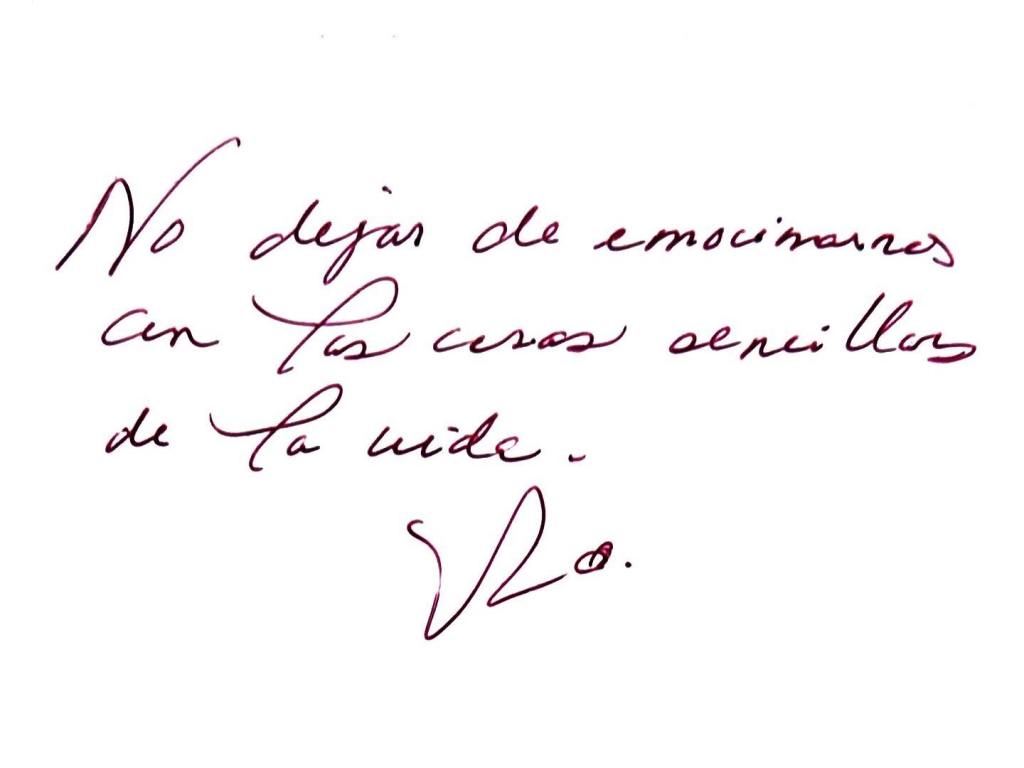 No dejar de emocionarnos
con las cosas sencillas
de la vida.